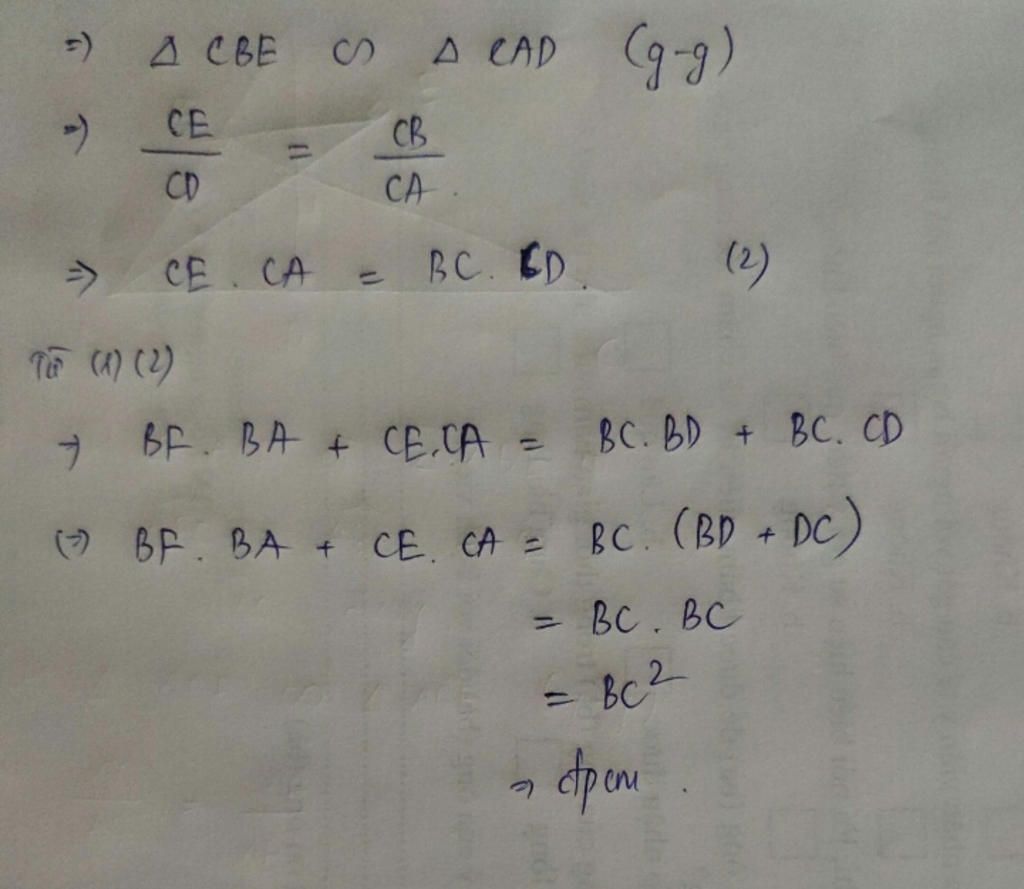 => Δ CBE ∽ Δ CAD (g-g)
=> CE/CD = CB/CA.
=> CE. CA = BC. CD. (2)
Từ (1) (2)
=> BF. BA + CE.CA = BC. BD + BC. CD
(=) BF. BA + CE. CA = BC. (BD + DC)
= BC. BC
= BC²
=> đpcm.